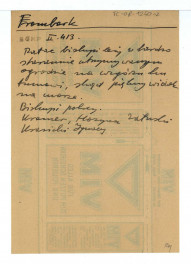 Frombork
II. 413.
Pałac biskupi leży w bardzo
starannie utrzymywanym
ogrodzie na wzgórzu
skąd piękny widok
na morze.
Biskupi polscy.
Kromer, Hozyusz, Załuski
Krasicki Ignacy